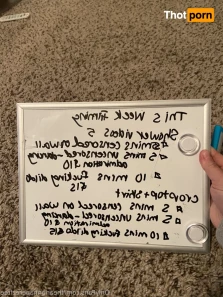 Thotporn
This Week Filming
Shower videos 5
5 mins censored on wall
5 mins uncensored - during
admiration $10
10 mins fucking dildo
$15
croptop + skirt
5 mins censored on wall
5 mins uncensored - during
admiration $10
10 mins fucking dildo $15